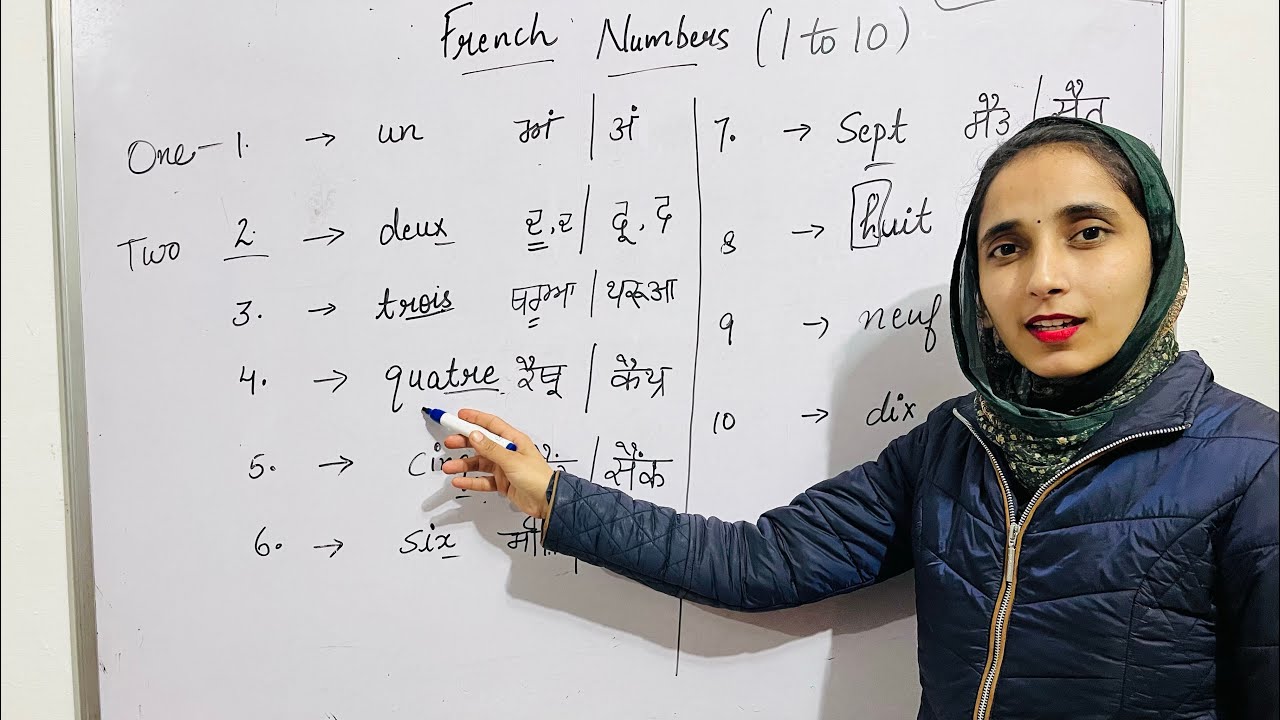 French Numbers (1 to 10)
One - 1. → un ਅਂ | अं
Two 2. → deux ਦੂ, ਦ | दू, द
3. → trois ਥਰੂਆ | थरूआ
4. → quatre | कैथ्र
5. → cinq | सैंक
6. → six
7. → Sept ਸੈਤ | सैत
8 → huit
9 → neuf
10 → dix